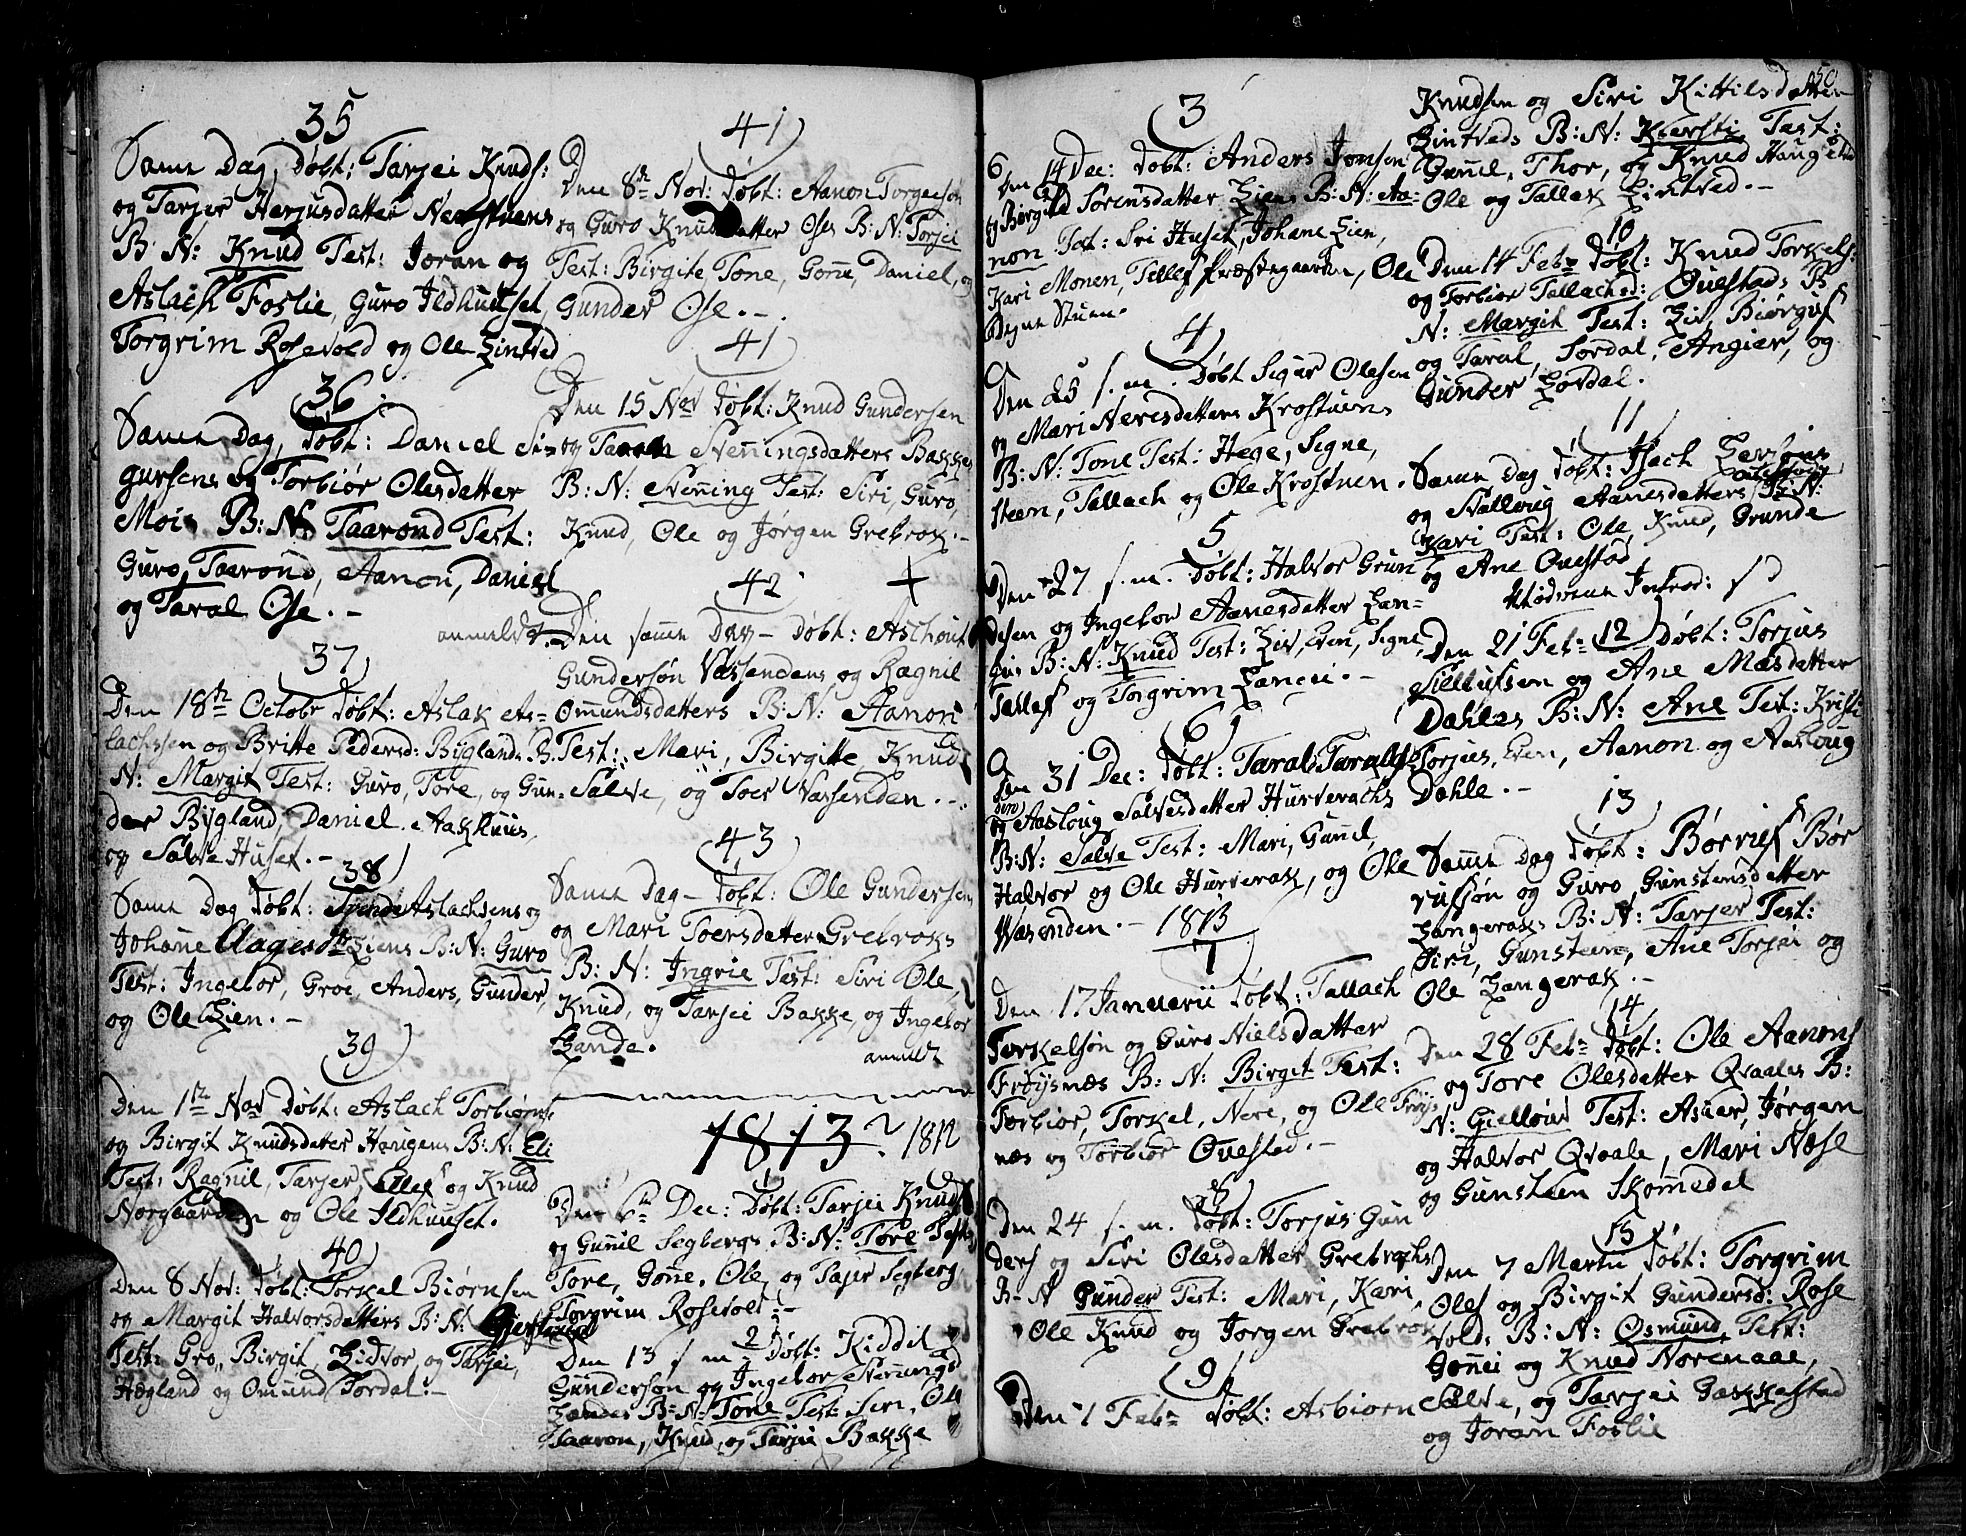 35
Same Dag, Døbt: Tarjei Knuds:
og Tarjer Herjusdatter Nerstuens
B: N: Knud Test: Joran og
Aslach Foslie, Guro Ildhuuset,
Torgrim Rosevold og Ole Lintved
36
Same Dag, Døbt: Daniel Si-
gursens og Torbiør Olesdatter
Mois B: N: Taarond Test:
Guro, Taarond, Aanon, Daniel
og Taral Ose. -
37
Den 18th Octobr Døbt: Aslak As-
lachssen og Britte Pedersd: Bygland B.
N: Margit Test: Guro, Tore, og Gun-
der Bygland, Daniel Aakhuus,
og Salve Huset. -
38
Same Dag Døbt: Aslachsens og
Johane Aagesd Liens B: N: Guro
Test: Ingebor, Groe, Anders, Gunder,
og Ole Lien. -
39
Den 1th Nov Døbt: Aslach Torbiørns
og Birgit Knudsdatter Haugens B: N: Eli
Test: Ragnil, Tarjer, Tellef og Knud
Norgaarden og Ole Ildhuuset.
40
Den 8 Nov: Døbt: Torkel Biørnsen
og Margit Halvorsdatters B: N:
Test: Gro, Birgit, Lidvor, og Tarjei,
Hægland og Omund Jordal. -
41
Den 8th Nov: Døbt: Aanon Torgersøn
og Guro Knudsdatter Oses B: N: Torjei
Test: Birgite, Tone, Gone, Daniel, og
Gunder Ose. -
41
Den 15 Nov Døbt: Knud Gundersen
og Svenningsdatters Bakke
B: N: Svenning Test: Siri, Guro,
Knud, Ole og Jørgen Grebrok. -
42 +
anmeldt. Den samme Dag - Døbt: Aschout
Gundersøn Vassendens og Ragnil
Omundsdatters B: N: Aanon
Test: Mari, Birgitte, Knud
Salve, og Toer Vassenden. -
43
Same Dag - Døbt: Ole Gundersen
og Mari Toersdatter Grebroks
B: N: Ingrie Test: Siri Ole,
Knud, og Tarjei Bakke og Ingebor
Lande.
anmeldt
1813? 1812
1
Den 6th Dec: Døbt: Tarjei Knuds
og Gunil Segbergs B: N: Tore Test:
Tore, Gone, Ole, og Tarjer Segberg
Torgrim Rosevold. -
2
Den 13 s. m. Døbt: Kiddil
Gundersøn og Ingebor Svenningsd
Landes B: N: Tone Test: Siri, Ole
Taaron, Knud, og Tarjei Bakke
3
Den 14 Dec: Døbt: Anders Jonsen
og Birgite Sorensdatter Liens B: N: Aa-
non Test: Siri Huset, Johane Lien,
Kari Monen, Tellef Præstegaarden, Ole
Degne Stuen.
4
Den 25 s. m. Døbt Sigur Olesen
og Mari Neresdatters Krostuens
B: N: Tone Test: Hege, Signe,
Steen, Tallach og Ole Krostuen.
5
Den 27 s. m. Døbt: Halvor Grun
desen og Ingebor Aanesdatter Lan-
geis B: N: Knud Test: Liv, Even, Signe,
Tallef og Torgrim Langei. -
6
Den 31 Dec: Døbt: Taral Taralsen
og Aasloug Salvesdatter Hurveracks
B: N: Salve Test: Mari, Gunil,
Halvor og Ole Hurverak, og Ole
Vasenden. - 1813
7
Den 17 Januarii Døbt: Tallach
Torkelsøn og Guro Nielsdatter
Frøysnæs B: N: Birgit Test:
Torbiør, Torkel, Nere, og Ole Frøys
næs og Torbiør Ovestad. -
8
Den 24 s. m. Døbt: Torjus Gun
ders og Siri Olesdatter Grebrocks
B- N Gunder Test: Mari, Kari,
Ole Knud og Jorgen Grebrok
9
Den 1 Febr Døbt: Asbiorn
150
Knudsen og Siri Kittilsdatter
Lintveds B: N: Kiersti Test:
Gunil, Thor, og Knud Haugeto
Ole og Tallak Lintved. -
10
Den 14 Febr Døbt: Knud Torkels:
og Torbiør Tallachsd: Ovestads B
N: Margit Test: Liv, Biørguf
og Taral, Sordal, Angier, og
Gunder Sordal.
11
Same Dag Døbt: Isach
og Valborg Aanesdatters B: N:
Kari Test: Ole, Knud, Grunde
og Ane Ovestad
Moderens Introd:
12
Den 21 Febr Døbt: Torjus
Tellufsen og Ane Mæsdatter
Dahles B: N: Ane Test: Kristi
Torjus, Even, Aanon og Aasloug
Dahle. -
13
Same Dag Døbt: Børruf Bør
rufsøn og Guro Gunstensdatter
Langeraks B: N: Tarjer Test:
Siri, Gunsteen, Ane Torjei og
Ole Langerak. -
14
Den 28 Febr Døbt: Ole Aanons
og Tore Olesdatter Qvaales B:
N: Gielløug Test: Asner, Jørgen
og Halvor Qvaale, Mari Nese
og Gunsteen Skomedel
15
Den 7 Martii Døbt: Torgrim
Oles og Birgit Gundersd: Rose
volds B: N: Osmund, Test:
Gonei og Knud Norenaae,
Salve, og Tarjei Gakkestad
og Joran Foslie